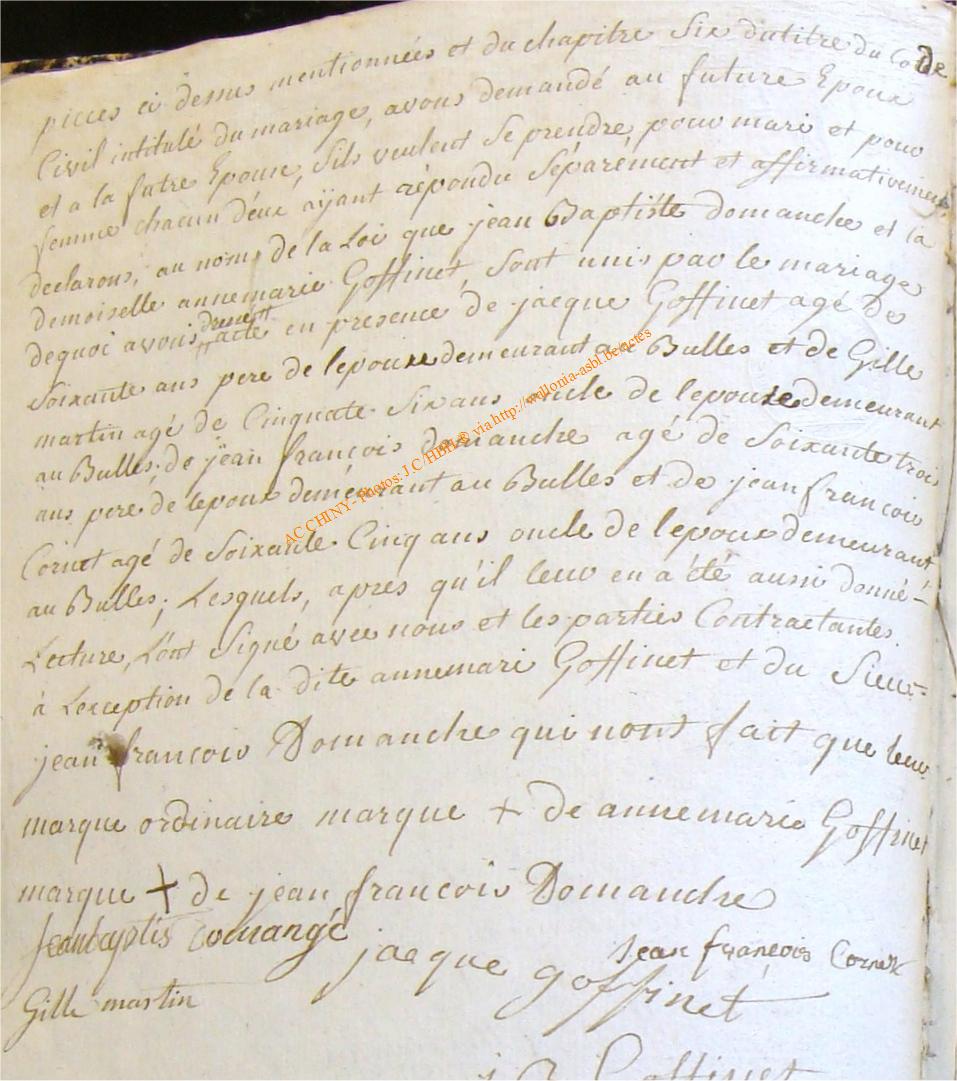 pieces ci dessus mentionnées et du chapitre Six du titre du Code
Civil intitulé du mariage, avons demandé au future Epoux
et a la futre Epouse, Sils veulent Se prendre, pour mari et pour
femme chacun d'eux aÿant répondu Séparément et affirmativement
declarons, au nom, de la Loi que jean Baptiste domanche et la
demoiselle annemarie Goffinet, Sont unis par le mariage
dequoi avons dressé acte en presence de jacque Goffinet agé de
Soixante ans pere de lepouse demeurant au Bulles et de Gille
martin agé de Cinquate Six ans oncle de lepouse demeurant
au Bulles, de jean françois domanche agé de Soixante trois
ans pere de lepoux demeurant au Bulles et de jean francois
Cornet agé de Soixante Cinq ans oncle de lepoux demeurant
au Bulles; Lesquels, apres qu'il leur en a été aussi donné
Lecture, L'ont Signé avec nous et les parties Contractantes
à Lexception de la dite annemari Goffinet et du Sieur
jean francois Domanche qui nont fait que leur
marque ordinaire marque + de annemarie Goffinet
marque + de jean francois Domanche
Jean françois Cornet
jacque goffinet
Gille martin
Goffinet
AC CHINY - Photos: J.C/HBH ® via http://wallonia-asbl.be/actes